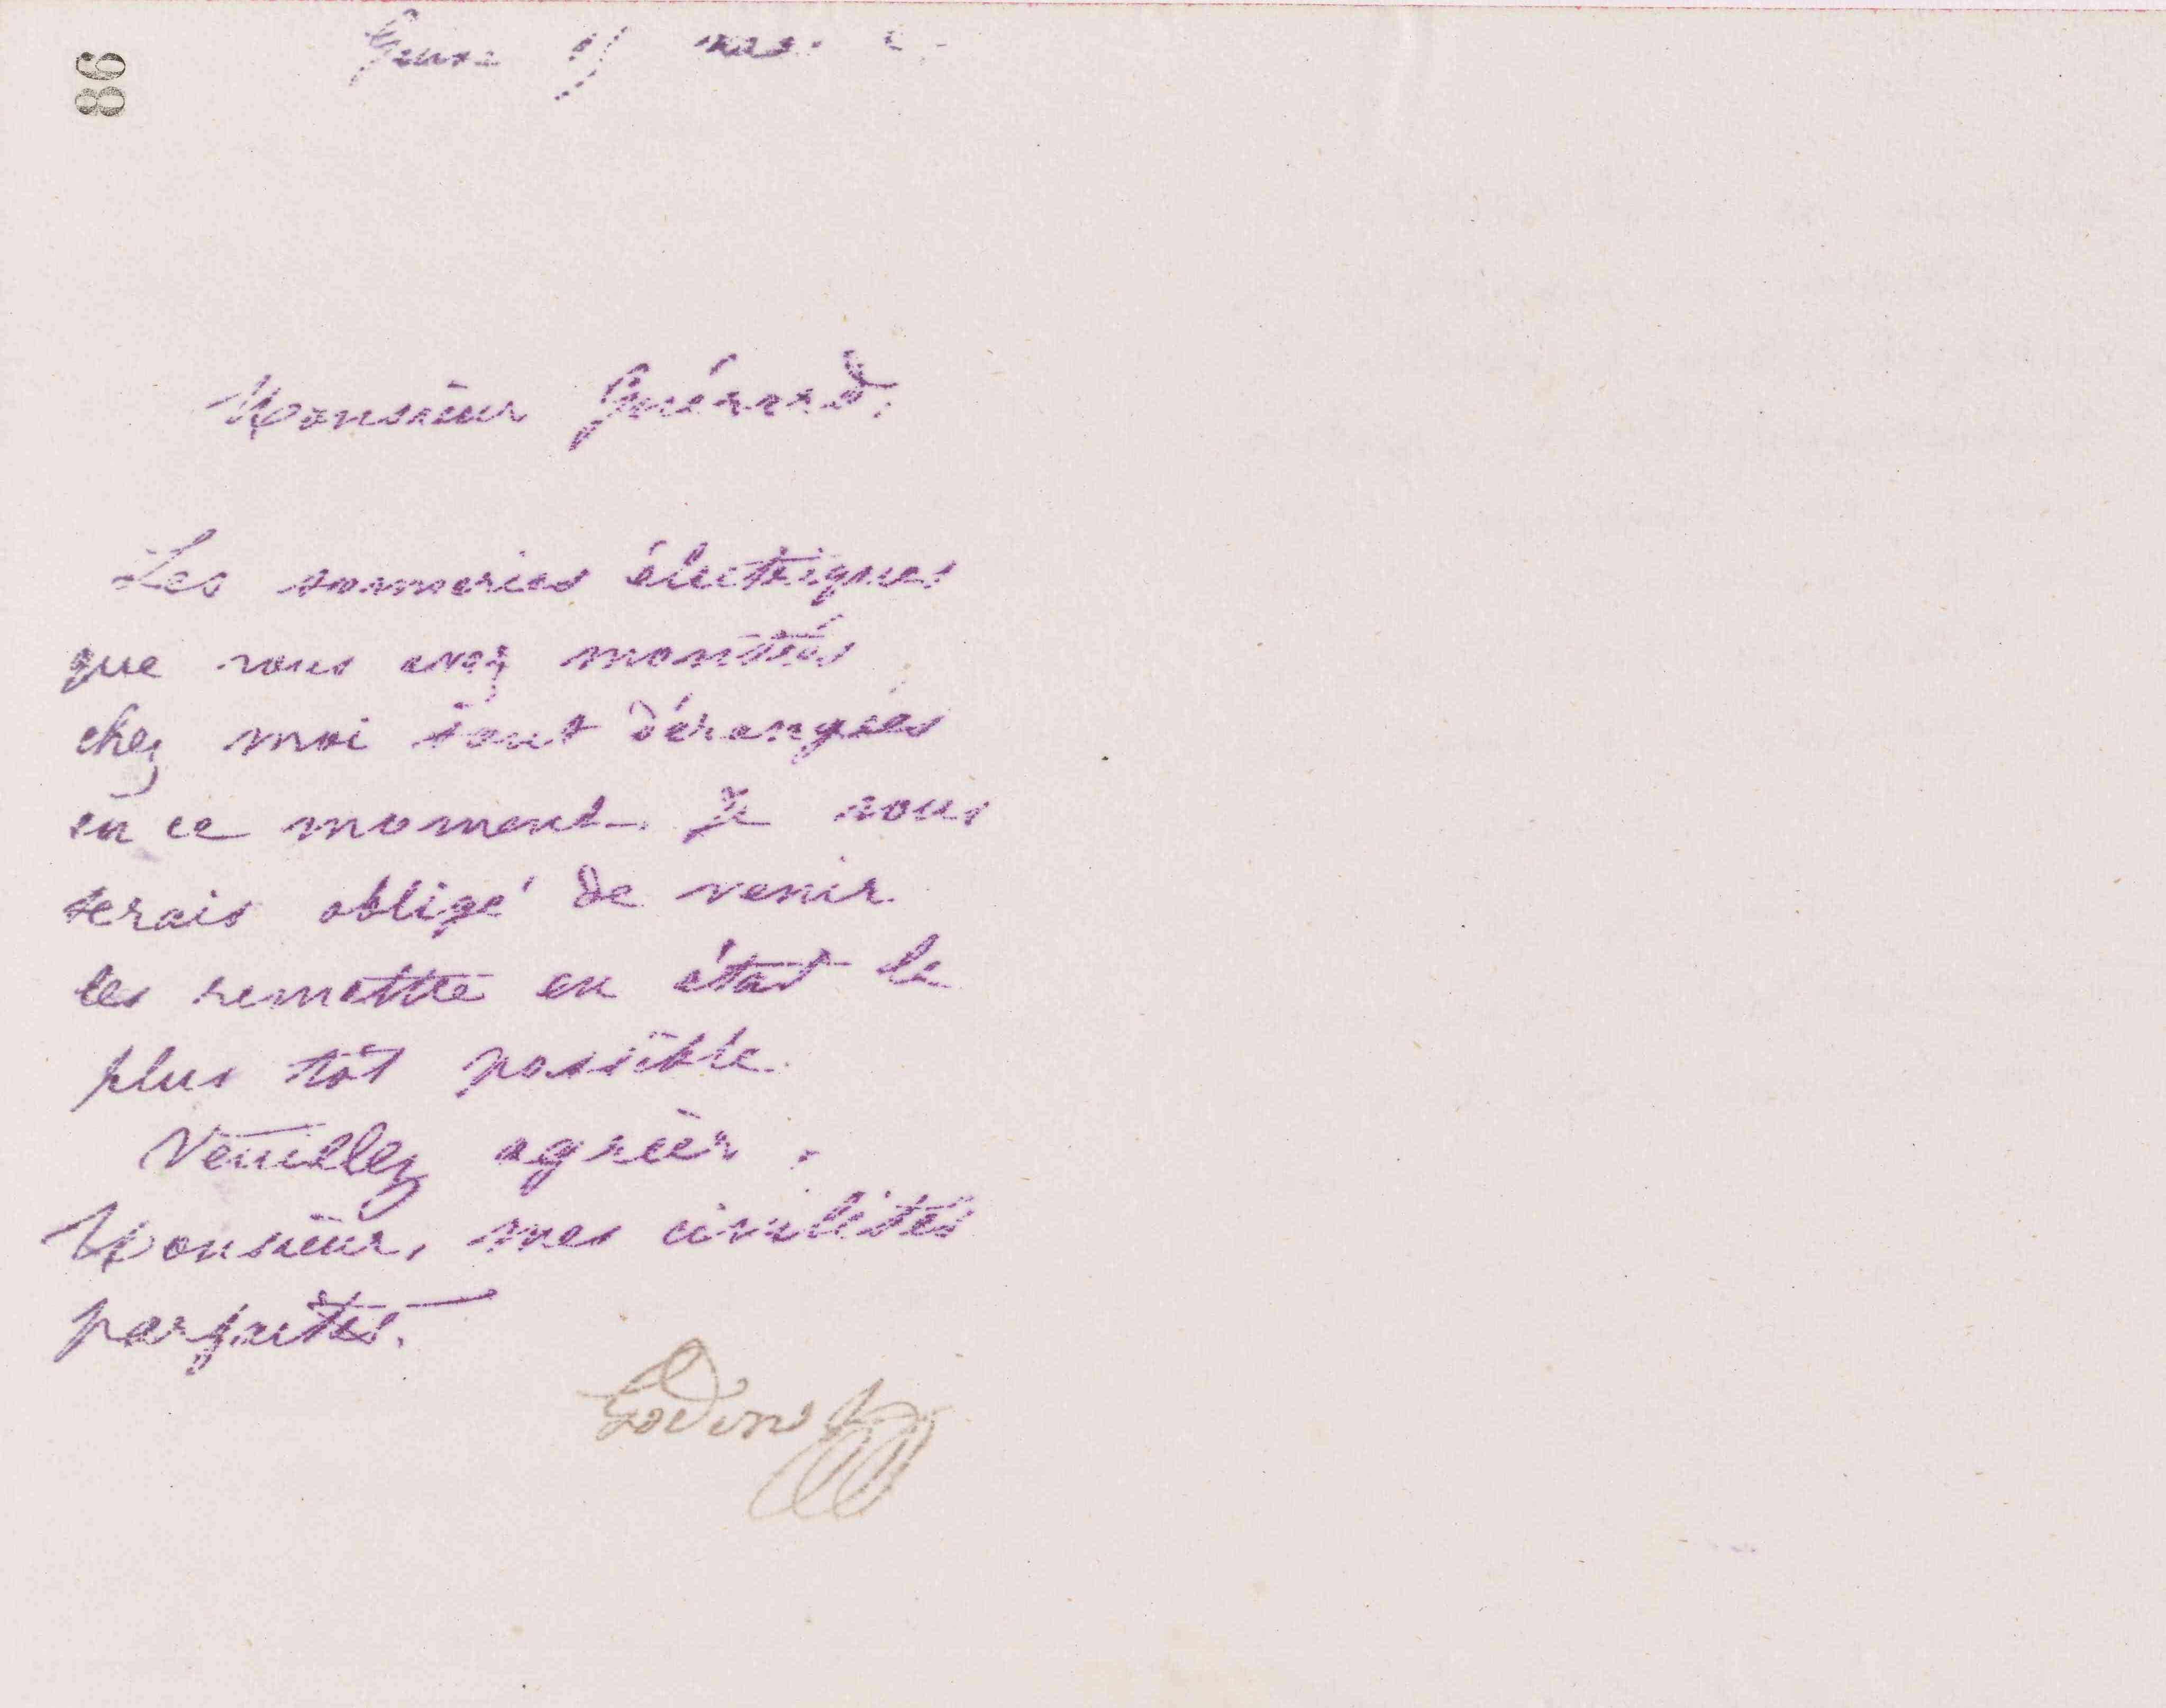 86
Guise
Monsieur Guérard,
Les sonneries électriques
que vous avez montées
chez moi sont dérangées
en ce moment. Je vous
serais obligé de venir
les remettre en état le
plus tôt possible.
Veuillez agréer,
Monsieur, mes civilités
parfaites.
Godin